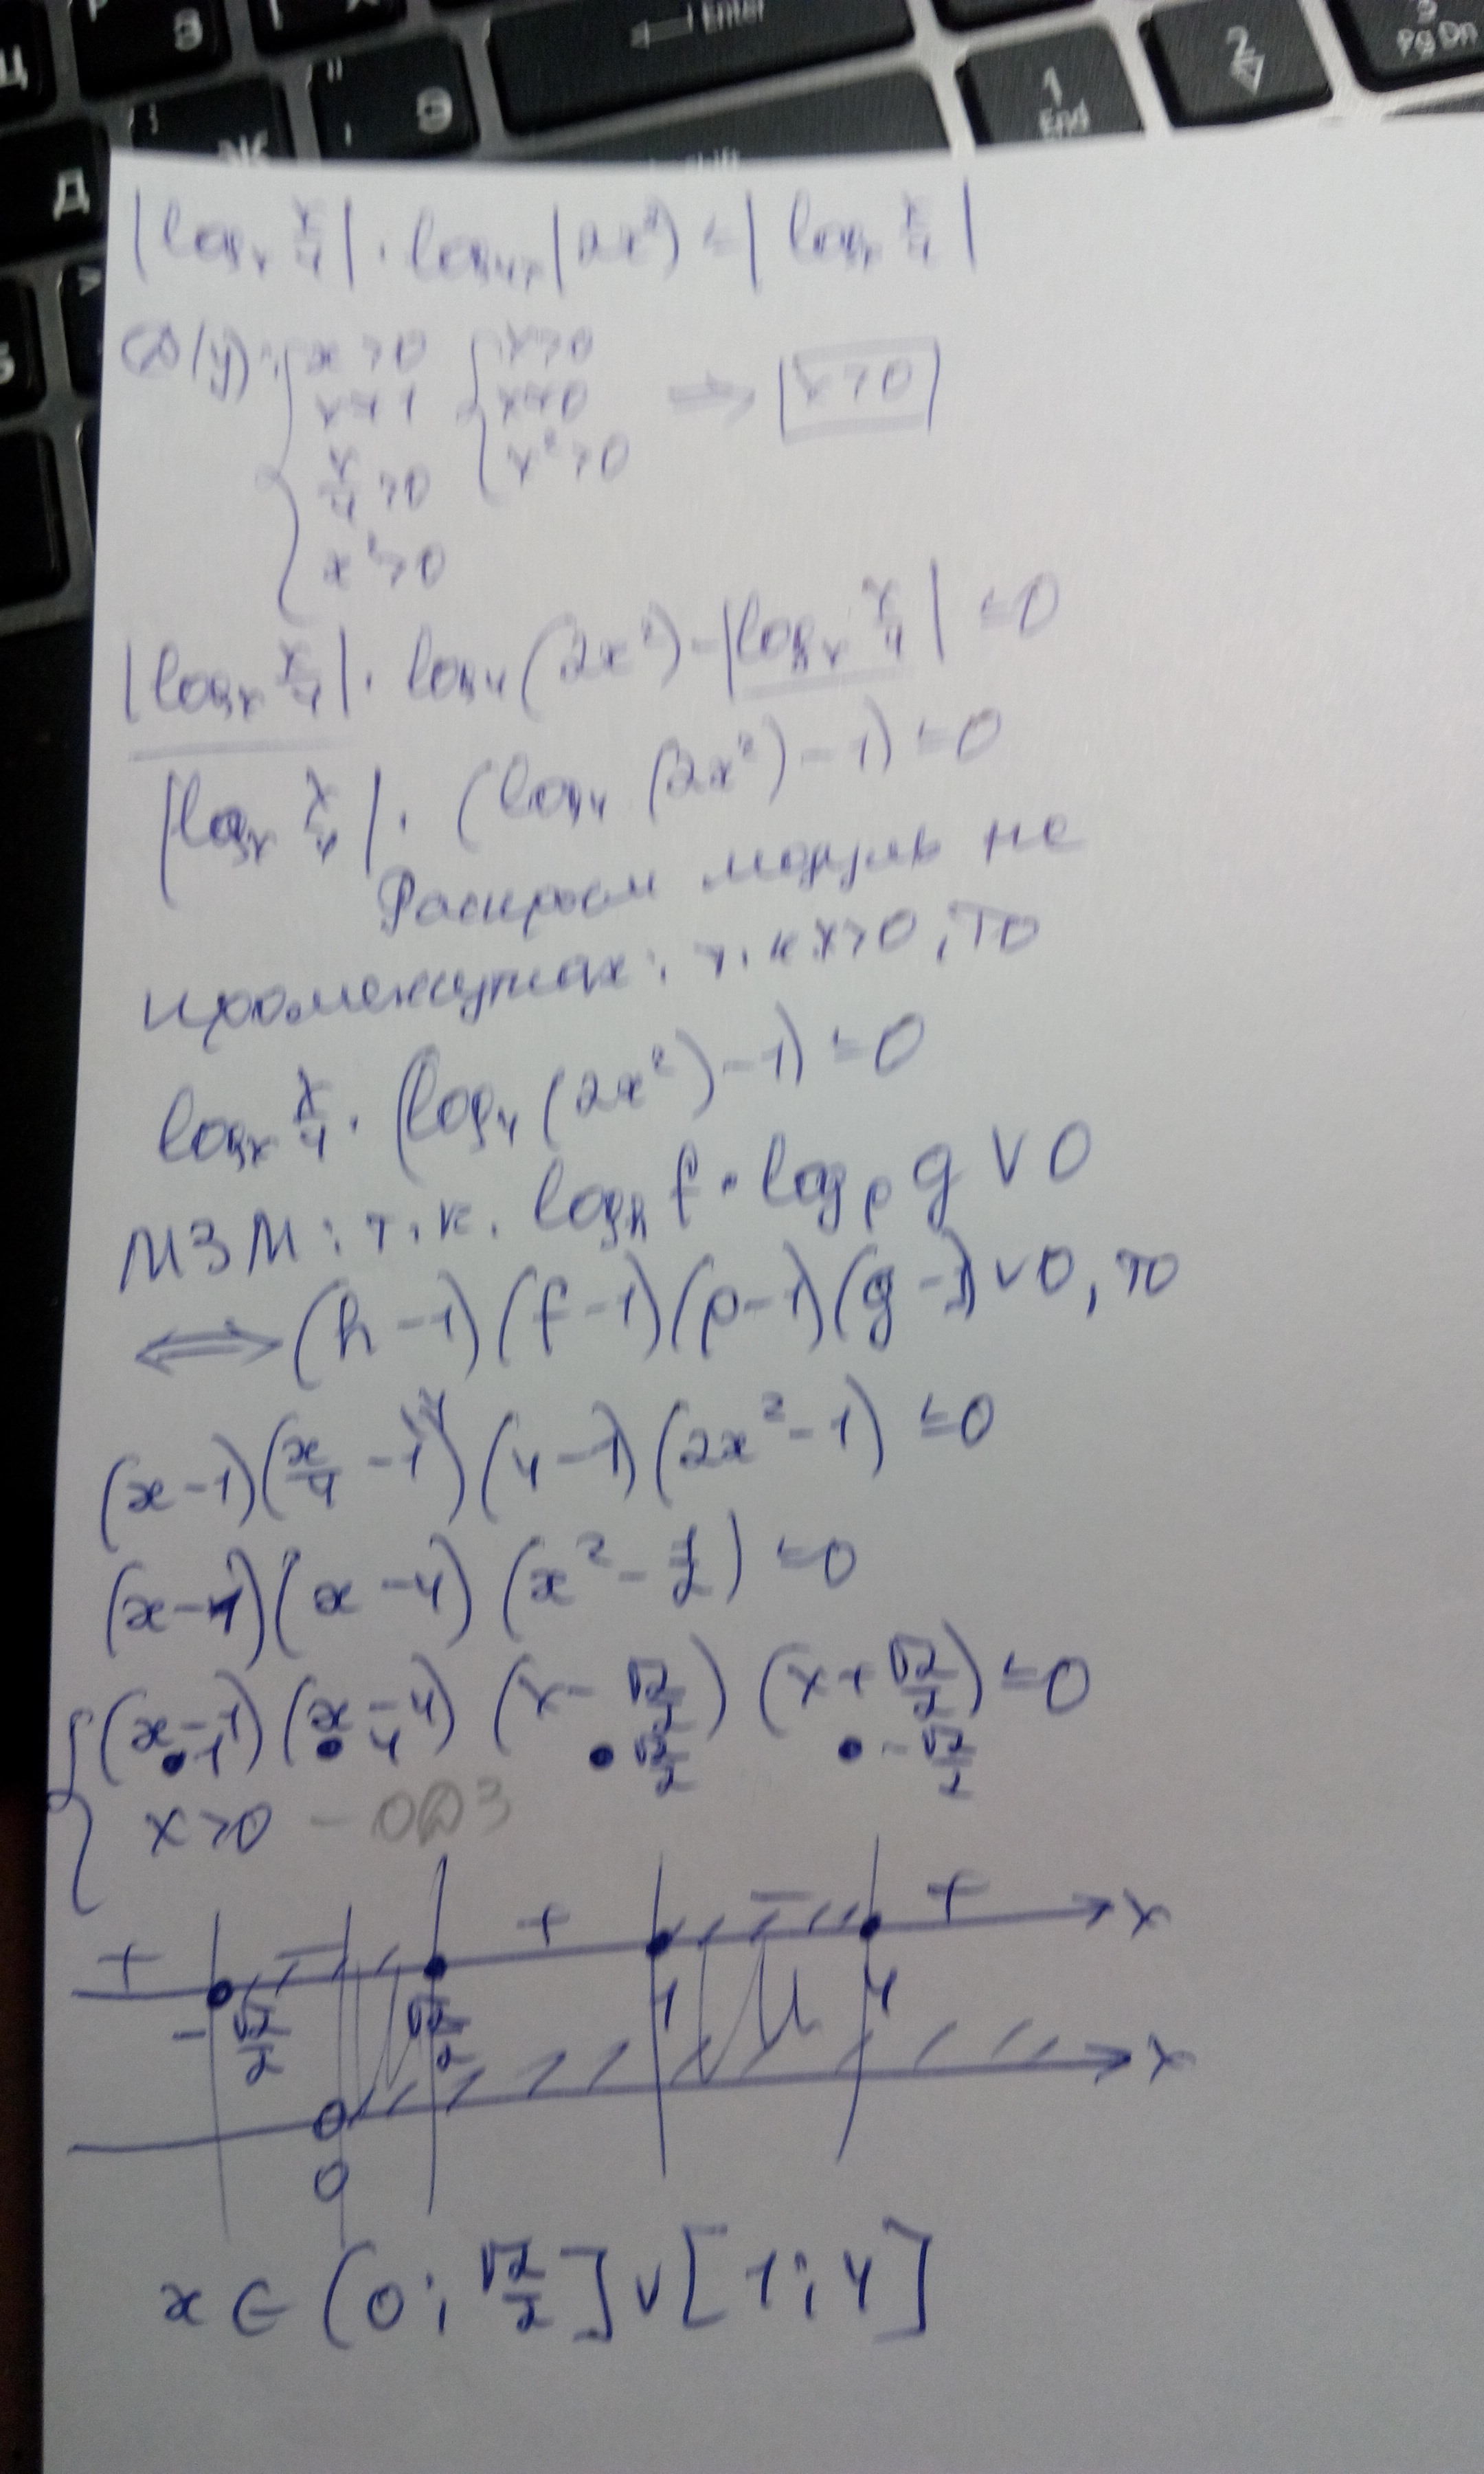 Enter
1
End
2
Pg Dn
Д
|logₓ x/4| · log₄ₓ|2x²) ≤ |logₓ x/4|
D(y): { x>0 { x>0
x≠1 x≠0 ⇒ |x>0|
x/4 >0 x²>0
x²>0
|logₓ x/4| · log₄(2x²) - |logₓ x/4| ≤0
|logₓ x/4| · (log₄ (2x²) - 1) ≤0
Раскроем модуль на
промежутках: т.к x>0, то
logₓ x/4 · (log₄ (2x²) - 1) ≤0
МЗМ: т.к. logₕ f · logₚ g ∨ 0
⟺ (h-1)(f-1)(p-1)(g-1)∨0, то
(x-1)(x/4 -1)(4-1)(2x²-1) ≤0
(x-1)(x-4)(x²-1/2) ≤0
{ (x-1)(x-4)(x-√2/2)(x+√2/2) ≤0
• 1 • 4 • √2/2 • -√2/2
x>0 - ОДЗ
+ - + - + x
-√2/2 √2/2 1 4
x
0
x∈(0; √2/2]∨[1; 4]